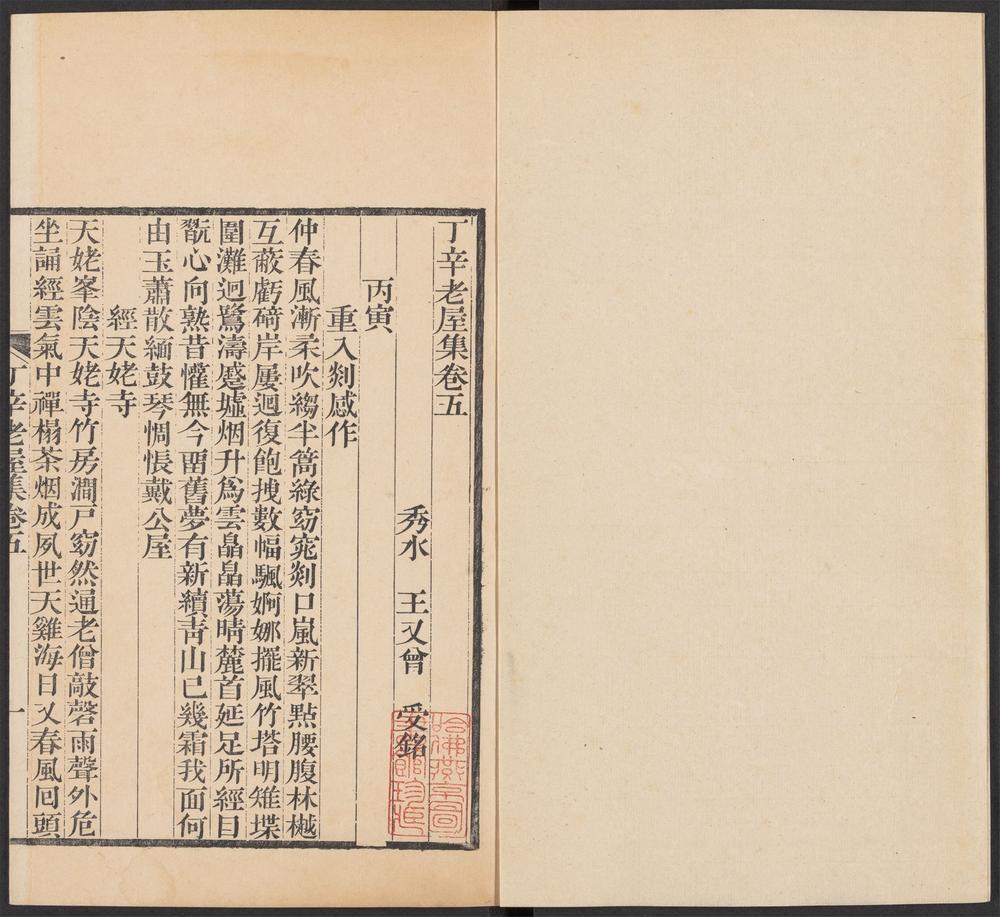 丁辛老屋集卷五
秀水　王又曾　受銘
丙寅
重入剡感作
仲春風漸柔吹縐半篙綠窈窕剡口嵐新翠點腰腹林樾
互蔽虧碕岸屢迴復飽拽數幅颿婀娜擺風竹塔明雉堞
圍灘迴鷺濤蹙墟烟升爲雲皛皛蕩晴麓首延足所經日
翫心向熟昔懽無今畱舊夢有新續靑山已幾霜我面何
由玉蕭散緬鼓琴惆悵戴公屋
經天姥寺
天姥峯陰天姥寺竹房澗戸窈然通老僧敲磬雨聲外危
坐誦經雲氣中禪榻茶烟成夙世天雞海日又春風回頭
丁辛老屋集卷五
一
哈佛燕京圖